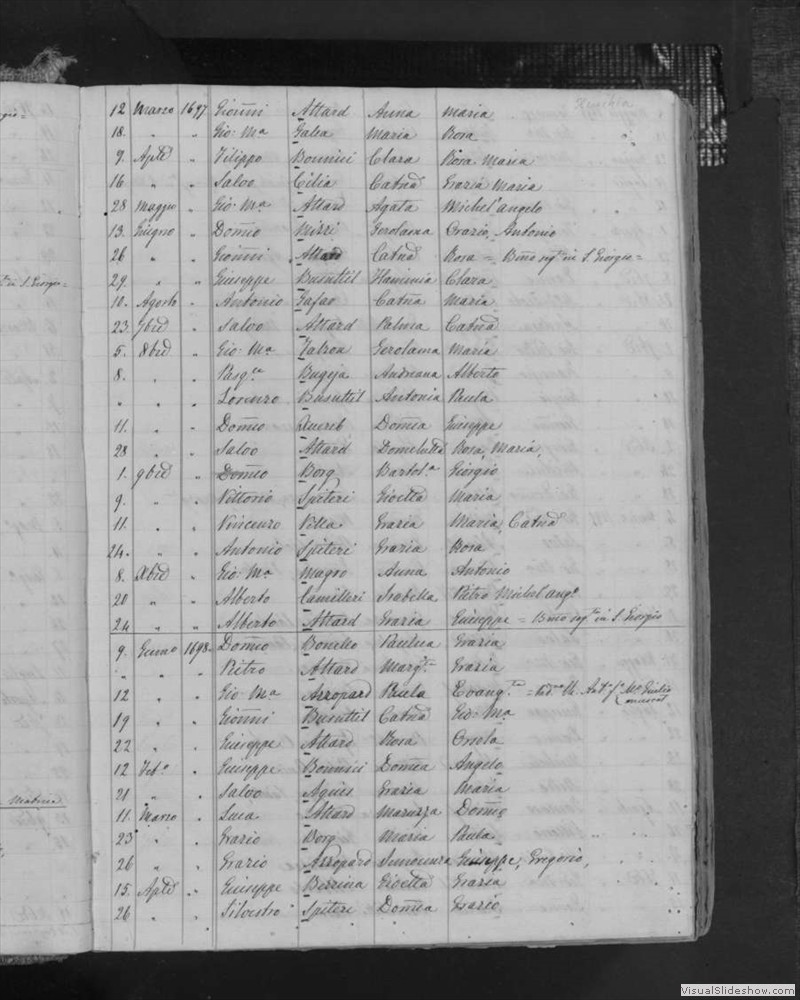 12 Marzo 1697 Gionni Attard Anna Maria
18. " " Gio: Ma Galea Maria Rosa
9. Aple " Filippo Bonnici Clara Rosa Maria
16 " " Salvo Cilia Catna Grazia Maria
28 Maggio " Gio: Ma Attard Agata Michel'angelo
13. Giugno " Domco Mizzi Gerolama Orazio, Antonio
26 " " Gionni Attard Catna Rosa = in S. Giorgio =
29. " " Giuseppe Busuttil Flaminia Clara
to in S. Giorgio =
10. Agosto " Antonio Gafao Catna Maria
23. 7bre " Salvo Attard Palma Catna
5. 8bre " Gio: Ma Falzon Gerolama Maria
8. " " Pasq.le Bugeja Andreana Alberto
" " " Lorenzo Busuttil Antonia Paula
11. " " Domco Xuereb Domca Giuseppe
28 " " Salvo Attard Rosa, Maria,
1. 9bre " Domco Borg Bartol.a Giorgio
9. " " Vittorio Spiteri Gioetta Maria
11. " " Vincenzo Villa Grazia Maria, Catna
24. " " Antonio Spiteri Grazia Rosa
8. Xbre " Gio: Ma Magro Anna Antonio
20 " " Alberto Camilleri Isabella Pietro Michel'ango
24 " " Alberto Attard Grazia Giuseppe = in S. Giorgio
9. Genno 1698 Domco Bonello Paulica Grazia
" " " Pietro Attard Marg.ta Grazia
12 " " Gio: Ma Azzopard Paula Evang.ta
19 " " Gionni Busuttil Catna Gio: Ma
22 " " Giuseppe Attard Rosa Orsola
12 Feb.o " Giuseppe Bonnici Domca Angelo
21 " " Salvo Agius Grazia Maria
11. Marzo " Luca Attard Maruzza Domco
23 " " Grazio Borg Maria Paula
26 " " Grazio Azzopard Giuseppe, Gregorio,
15. Aple " Giuseppe Bezzina Gioetta Grazia
26 " " Silvestro Spiteri Domca Grazio
VisualSlideshow.com